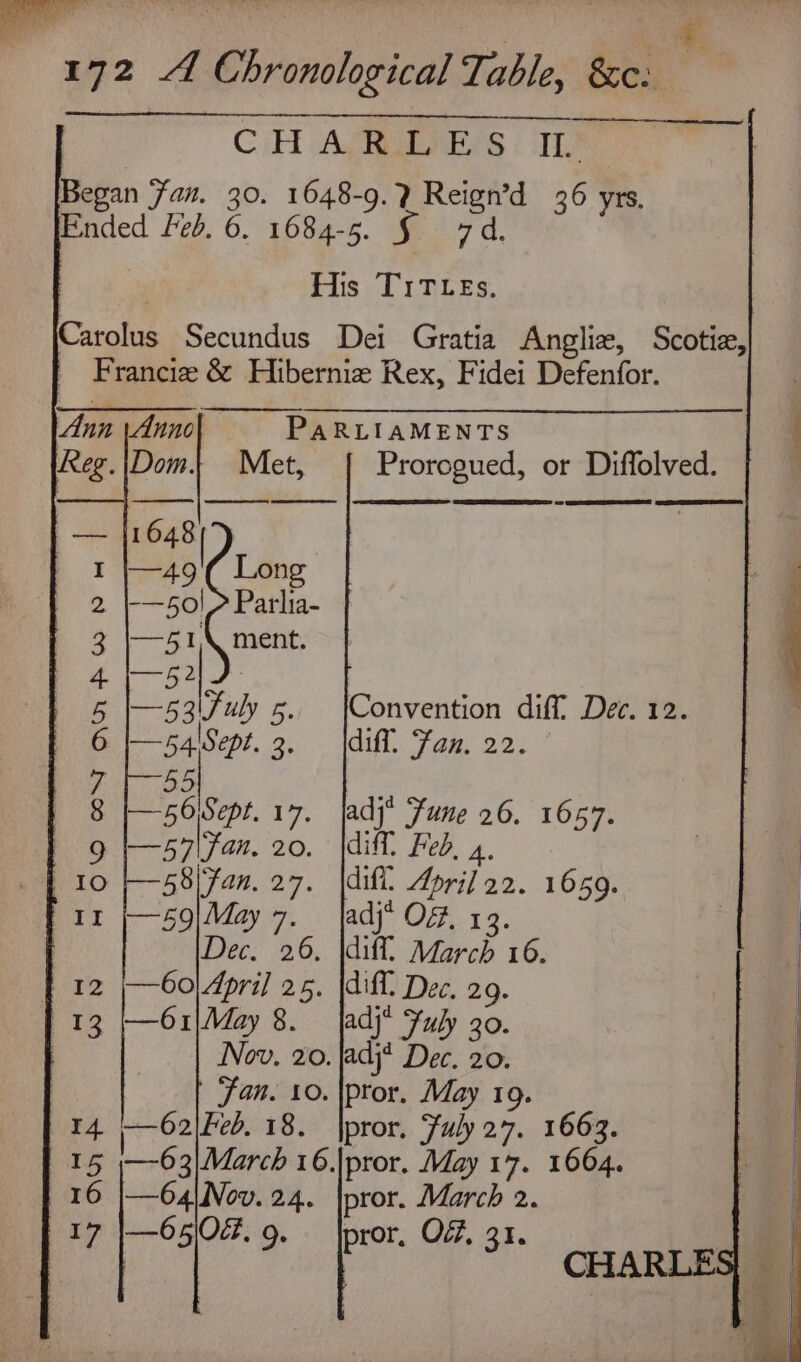 172 A Chronological Table, &c.
CHARLES II.
Began Jan. 30. 1648-9. } Reign'd 36 yrs.
Ended Feb. 6. 1684-5. } 7 d.
His TITLES.
Carolus Secundus Dei Gratia Angliæ, Scotiæ,
Franciæ & Hiberniæ Rex, Fidei Defenſor.
Ann Anno PARLIAMENTS
Reg. Dom. Met, Prorogued, or Diſſolved.
— 1648
1 —49 Long
2 —50 Parlia-
3 —51 ment.
4 —52
5 —53 July 5. Convention diſſ. Dec. 12.
6 —54 Sept. 3. diſſ. Jan. 22.
7 —55
8 —56 Sept. 17. adjᵗ June 26. 1657.
9 —57 Jan. 20. diſſ. Feb. 4.
10 —58 Jan. 27. diſſ. April 22. 1659.
11 —59 May 7. adjᵗ Oct. 13.
Dec. 26. diſſ. March 16.
12 —60 April 25. diſſ. Dec. 29.
13 —61 May 8. adjᵗ July 30.
Nov. 20. adjᵗ Dec. 20.
Jan. 10. pror. May 19.
14 —62 Feb. 18. pror. July 27. 1663.
15 —63 March 16. pror. May 17. 1664.
16 —64 Nov. 24. pror. March 2.
17 —65 Oct. 9. pror. Oct. 31.
CHARLES